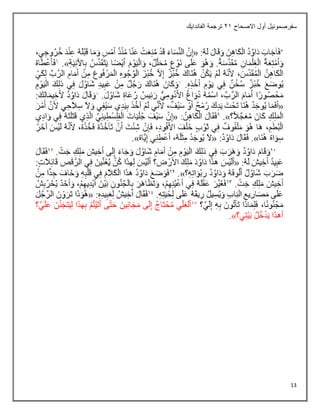 سفرصموئيل أول الاصحاح ٢١ ترجمة الفاندايك
٥فَأَجَابَ دَاوُدُ الْكَاهِنَ وَقَالَ لَهُ: «إِنَّ النِّسَاءَ قَدْ مُنِعَتْ عَنَّا مُنْذُ أَمْسِ وَمَا قَبْلَهُ عِنْدَ خُرُوجِي،
وَأَمْتِعَةُ الْغِلْمَانِ مُقَدَّسَةٌ. وَهُوَ عَلَى نَوْعٍ مُحَلَّلٌ، وَالْيَوْمَ أَيْضًا يَتَقَدَّسُ بِالآنِيَةِ». ٦فَأَعْطَاهُ
الْكَاهِنُ الْمُقَدَّسَ، لأَنَّهُ لَمْ يَكُنْ هُنَاكَ خُبْزٌ إِلاَّ خُبْزَ الْوُجُوهِ الْمَرْفُوعَ مِنْ أَمَامِ الرَّبِّ لِكَيْ
يُوضَعَ خُبْزٌ سُخْنٌ فِي يَوْمِ أَخْذِهِ. ٧وَكَانَ هُنَاكَ رَجُلٌ مِنْ عَبِيدِ شَاوُلَ فِي ذلِكَ الْيَوْمِ
مَحْصُورًا أَمَامَ الرَّبِّ، اسْمُهُ دُوَاغُ الأَدُومِيُّ رَئِيسُ رُعَاةِ شَاوُلَ. ٨وَقَالَ دَاوُدُ لأَخِيمَالِكَ:
«أَفَمَا يُوجَدُ هُنَا تَحْتَ يَدِكَ رُمْحٌ أَوْ سَيْفٌ، لأَنِّي لَمْ آخُذْ بِيَدِي سَيْفِي وَلاَ سِلاَحِي لأَنَّ أَمْرَ
الْمَلِكِ كَانَ مُعَجِّلاً؟». ٩فَقَالَ الْكَاهِنُ: «إِنَّ سَيْفَ جُلْيَاتَ الْفِلِسْطِينِيِّ الَّذِي قَتَلْتَهُ فِي وَادِي
الْبُطْمِ، هَا هُوَ مَلْفُوفٌ فِي ثَوْبٍ خَلْفَ الأَفُودِ، فَإِنْ شِئْتَ أَنْ تَأْخُذَهُ فَخُذْهُ، لأَنَّهُ لَيْسَ آخَرُ
سِوَاهُ هُنَا». فَقَالَ دَاوُدُ: «لاَ يُوجَدُ مِثْلُهُ، أَعْطِنِي إِيَّاهُ».
١٠وَقَامَ دَاوُدُ وَهَرَبَ فِي ذلِكَ الْيَوْمِ مِنْ أَمَامِ شَاوُلَ وَجَاءَ إِلَى أَخِيشَ مَلِكِ جَتَّ. ١١فَقَالَ
عَبِيدُ أَخِيشَ لَهُ: «أَلَيْسَ هذَا دَاوُدَ مَلِكَ الأَرْضِ؟ أَلَيْسَ لِهذَا كُنَّ يُغَنِّينَ فِي الرَّقْصِ قَائِلاَتٍ:
ضَرَبَ شَاوُلُ أُلُوفَهُ وَدَاوُدُ رِبْوَاتِهِ؟». ١٢فَوَضَعَ دَاوُدُ هذَا الْكَلاَمَ فِي قَلْبِهِ وَخَافَ جِدًّا مِنْ
أَخِيشَ مَلِكِ جَتَّ. ١٣فَغَيَّرَ عَقْلَهُ فِي أَعْيُنِهِمْ، وَتَظَاهَرَ بِالْجُنُونِ بَيْنَ أَيْدِيهِمْ، وَأَخَذَ يُخَرْبِشُ
عَلَى مَصَارِيعِ الْبَابِ وَيُسِيلُ رِيقَهُ عَلَى لِحْيَتِهِ. ١٤فَقَالَ أَخِيشُ لِعَبِيدِهِ: «هُوَذَا تَرَوْنَ الرَّجُلَ
مَجْنُونًا، فَلِمَاذَا تَأْتُونَ بِهِ إِلَيَّ؟ ١٥أَلَعَلِّي مُحْتَاجٌ إِلَى مَجَانِينَ حَتَّى أَتَيْتُمْ بِهذَا لِيَتَجَنَّنَ عَلَيَّ؟
أَهذَا يَدْخُلُ بَيْتِي؟».
13